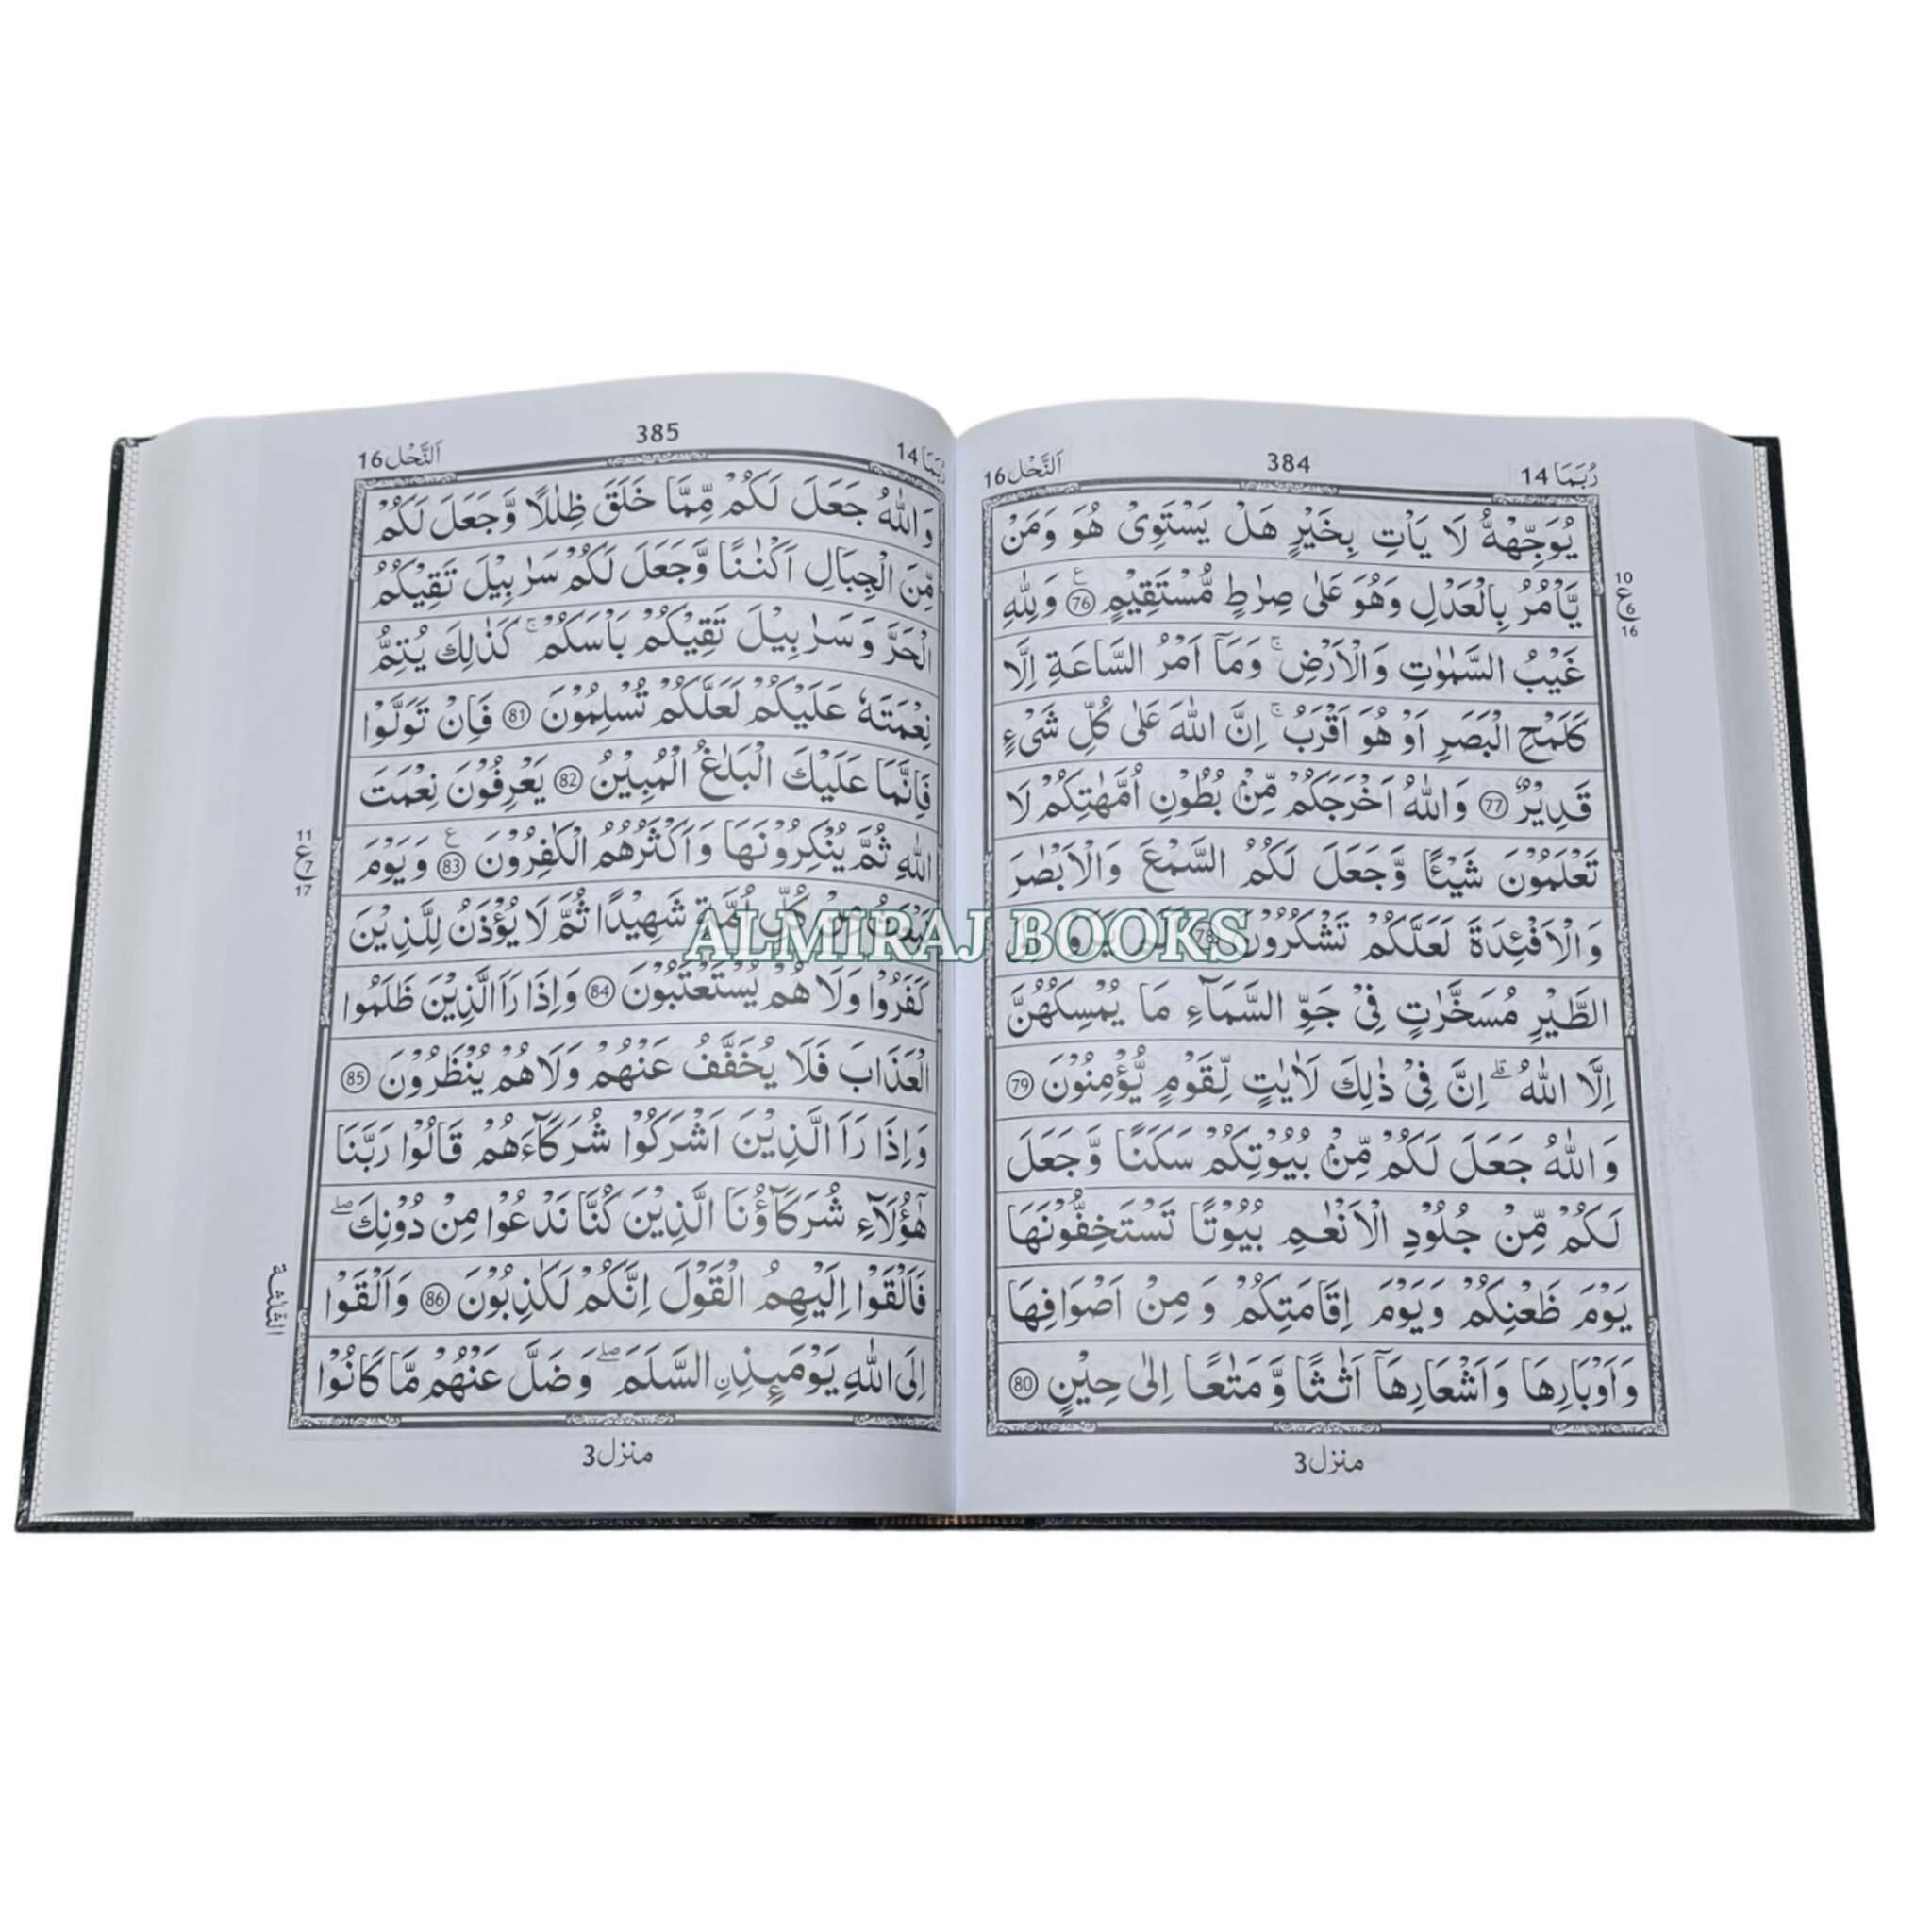 رُبَمَا 14
384
اَلنَّحْل 16
يُوَجِّهْهُّ لَا يَاْتِ بِخَيْرٍ هَلْ يَسْتَوِىْ هُوَ وَمَنْ
يَّاْمُرُ بِالْعَدْلِ وَهُوَ عَلٰى صِرٰطٍ مُّسْتَقِيْمٍ ع 76 وَلِلّٰهِ
غَيْبُ السَّمٰوٰتِ وَالْاَرْضِ ۚ وَمَآ اَمْرُ السَّاعَةِ اِلَّا
كَلَمْحِ الْبَصَرِ اَوْ هُوَ اَقْرَبُ ۚ اِنَّ اللّٰهَ عَلٰى كُلِّ شَىْءٍ
قَدِيْرٌ 77 وَاللّٰهُ اَخْرَجَكُمْ مِّنْ بُطُوْنِ اُمَّهٰتِكُمْ لَا
تَعْلَمُوْنَ شَيْـًٔا وَّجَعَلَ لَكُمُ السَّمْعَ وَالْاَبْصٰرَ
وَالْاَفْـِٕدَةَ لَعَلَّكُمْ تَشْكُرُوْنَ 78
الطَّيْرِ مُسَخَّرٰتٍ فِىْ جَوِّ السَّمَآءِ مَا يُمْسِكُهُنَّ
اِلَّا اللّٰهُ ۗ اِنَّ فِىْ ذٰلِكَ لَاٰيٰتٍ لِّقَوْمٍ يُّؤْمِنُوْنَ 79
وَاللّٰهُ جَعَلَ لَكُمْ مِّنْ بُيُوْتِكُمْ سَكَنًا وَّجَعَلَ
لَكُمْ مِّنْ جُلُوْدِ الْاَنْعٰمِ بُيُوْتًا تَسْتَخِفُّوْنَهَا
يَوْمَ ظَعْنِكُمْ وَيَوْمَ اِقَامَتِكُمْ وَمِنْ اَصْوَافِهَا
وَاَوْبَارِهَا وَاَشْعَارِهَآ اَثٰثًا وَّمَتٰعًا اِلٰى حِيْنٍ 80
10
ع 6
16
منزل 3
رُبَمَا 14
385
اَلنَّحْل 16
وَاللّٰهُ جَعَلَ لَكُمْ مِّمَّا خَلَقَ ظِلٰلًا وَّجَعَلَ لَكُمْ
مِّنَ الْجِبَالِ اَكْنٰنًا وَّجَعَلَ لَكُمْ سَرٰبِيْلَ تَقِيْكُمُ
الْحَرَّ وَسَرٰبِيْلَ تَقِيْكُمْ بَاْسَكُمْ ۚ كَذٰلِكَ يُتِمُّ
نِعْمَتَهٗ عَلَيْكُمْ لَعَلَّكُمْ تُسْلِمُوْنَ 81 فَاِنْ تَوَلَّوْا
فَاِنَّمَا عَلَيْكَ الْبَلٰغُ الْمُبِيْنُ 82 يَعْرِفُوْنَ نِعْمَتَ
اللّٰهِ ثُمَّ يُنْكِرُوْنَهَا وَاَكْثَرُهُمُ الْكٰفِرُوْنَ ع 83 وَيَوْمَ
مِنْ كُلِّ اُمَّةٍ شَهِيْدًا ثُمَّ لَا يُؤْذَنُ لِلَّذِيْنَ
كَفَرُوْا وَلَا هُمْ يُسْتَعْتَبُوْنَ 84 وَاِذَا رَاَ الَّذِيْنَ ظَلَمُوا
الْعَذَابَ فَلَا يُخَفَّفُ عَنْهُمْ وَلَا هُمْ يُنْظَرُوْنَ 85
وَاِذَا رَاَ الَّذِيْنَ اَشْرَكُوْا شُرَكَآءَهُمْ قَالُوْا رَبَّنَا
هٰٓؤُلَآءِ شُرَكَآؤُنَا الَّذِيْنَ كُنَّا نَدْعُوْا مِنْ دُوْنِكَ ۖ
فَاَلْقَوْا اِلَيْهِمُ الْقَوْلَ اِنَّكُمْ لَكٰذِبُوْنَ 86 وَاَلْقَوْا
اِلَى اللّٰهِ يَوْمَىِٕذِ ِۨالسَّلَمَ ۖ وَضَلَّ عَنْهُمْ مَّا كَانُوْا
11
ع 7
17
الثلثة
منزل 3
ALMIRAJ BOOKS